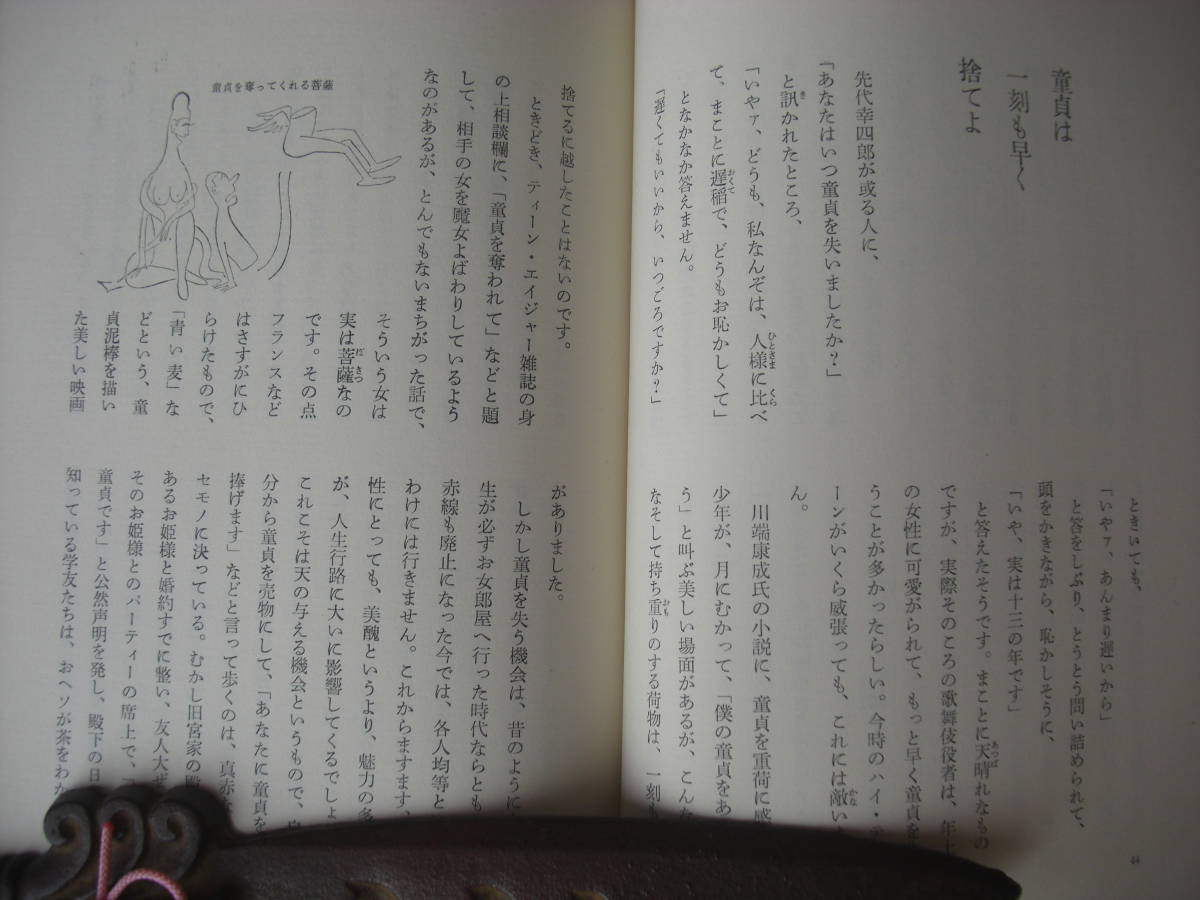 童貞は
一刻も早く
捨てよ
先代幸四郎が或る人に、
「あなたはいつ童貞を失いましたか?」
と訊かれたところ、
「いやァ、どうも、私なんぞは、人様に比べ
て、まことに遅稲で、どうもお恥かしくて」
となかなか答えません。
「遅くてもいいから、いつごろですか?」
ときいても、
「いやァ、あんまり遅いから」
と答をしぶり、とうとう問い詰められて、
頭をかきながら、恥かしそうに、
「いや、実は十三の年です」
と答えたそうです。まことに天晴れなもの
ですが、実際そのころの歌舞伎役者は、年上
の女性に可愛がられて、もっと早く童貞を
うことが多かったらしい。今時のハイ・テ
ィーンがいくら威張っても、これには敵いま
ん。
川端康成氏の小説に、童貞を重荷に感
少年が、月にむかって、「僕の童貞をあ
う」と叫ぶ美しい場面があるが、こんな
なそして持ち重りのする荷物は、一刻も
44
捨てるに越したことはないのです。
ときどき、ティーン・エイジャー雑誌の身
の上相談欄に、「童貞を奪われて」などと題
して、相手の女を魔女よばわりしているよう
なのがあるが、とんでもないまちがった話で、
童貞を奪ってくれる菩薩
そういう女は
実は菩薩なの
です。その点
フランスなど
はさすがにひ
らけたもので、
「青い麦」な
どという、童
貞泥棒を描い
た美しい映画
がありました。
しかし童貞を失う機会は、昔のように
生が必ずお女郎屋へ行った時代ならとも
赤線も廃止になった今では、各人均等と
わけには行きません。これからますます、
性にとっても、美醜というより、魅力の多
が、人生行路に大いに影響してくるでしょ
これこそは天の与える機会というもので、自
分から童貞を売物にして、「あなたに童貞を
捧げます」などと言って歩くのは、真赤な
セモノに決っている。むかし旧宮家の殿
あるお姫様と婚約すでに整い、友人大ぜ
そのお姫様とのパーティーの席上で、「
童貞です」と公然声明を発し、殿下の日
知っている学友たちは、おヘソが茶をわか